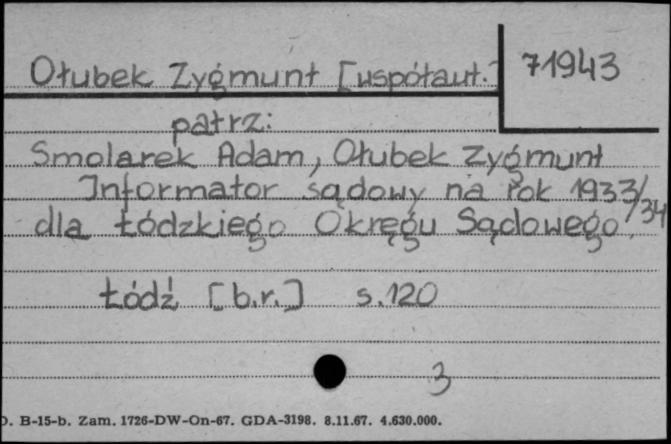 Ołubek Zygmunt [współaut.]
71943
patrz:
Smolarek Adam, Ołubek Zygmunt
Informator sądowy na rok 1933/34
dla Łódzkiego Okręgu Sądowego.
Łódź [b.r.] s.120
3
D. B-15-b. Zam. 1726-DW-On-67. GDA-3198. 8.11.67. 4.630.000.